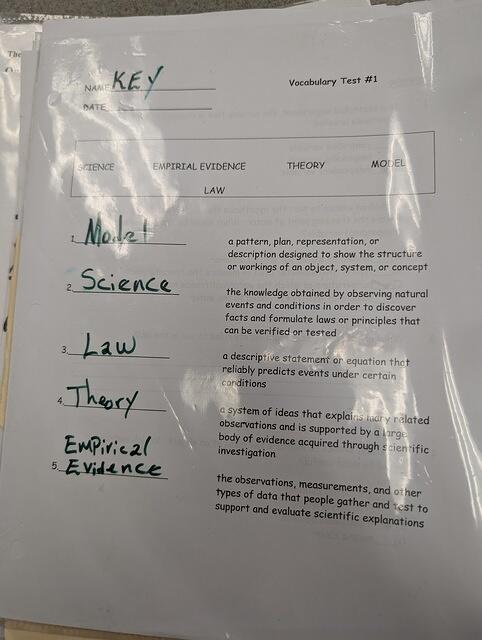 The
NAME KEY
Vocabulary Test #1
DATE
SCIENCE EMPIRIAL EVIDENCE THEORY MODEL
LAW
1. Model
a pattern, plan, representation, or
description designed to show the structure
or workings of an object, system, or concept
2. Science
the knowledge obtained by observing natural
events and conditions in order to discover
facts and formulate laws or principles that
can be verified or tested
3. Law
a descriptive statement or equation that
reliably predicts events under certain
conditions
4. Theory
a system of ideas that explains many related
observations and is supported by a large
body of evidence acquired through scientific
investigation
5. Empirical
Evidence
the observations, measurements, and other
types of data that people gather and test to
support and evaluate scientific explanations